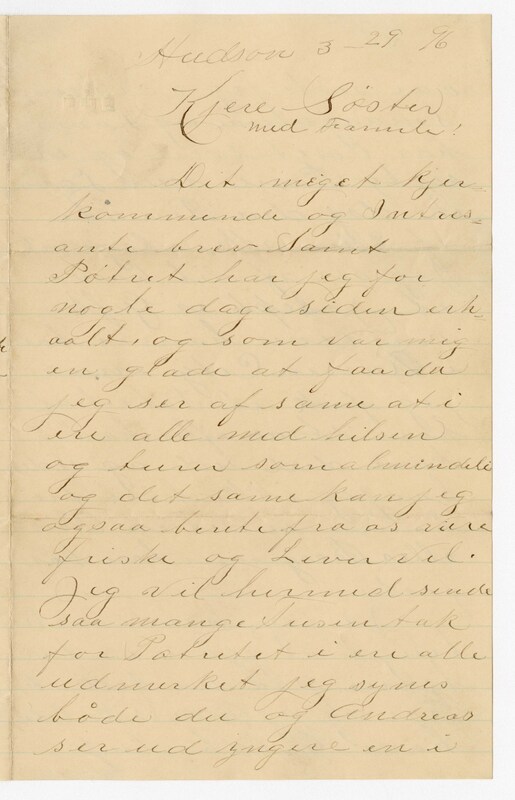 Hudson 3-29 96
Kjere Søster
med Famile!
Dit meget kjer-
kommende og Intres-
ante brev Samt
Potret har jeg for
nogle dage siden erh-
oolt, og som var mig
en glade at faa du
jeg ser af same at i
ere alle med hilsen
og turer som almindeli
og det same kan jeg
ogsaa berete fra os være
friske og Lever Vel.
Jeg Vil hermed sende
saa mange Tusen tak
for Potretet i er alle
udmerket jeg synes
både du og Andreas
ser ud yngere en i